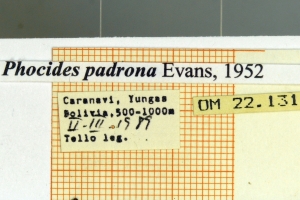 Phocides padrona Evans, 1952
Caranavi, Yungas
Bolivia, 500-1000m
II-III-1989
Tello leg.
OM 22.131